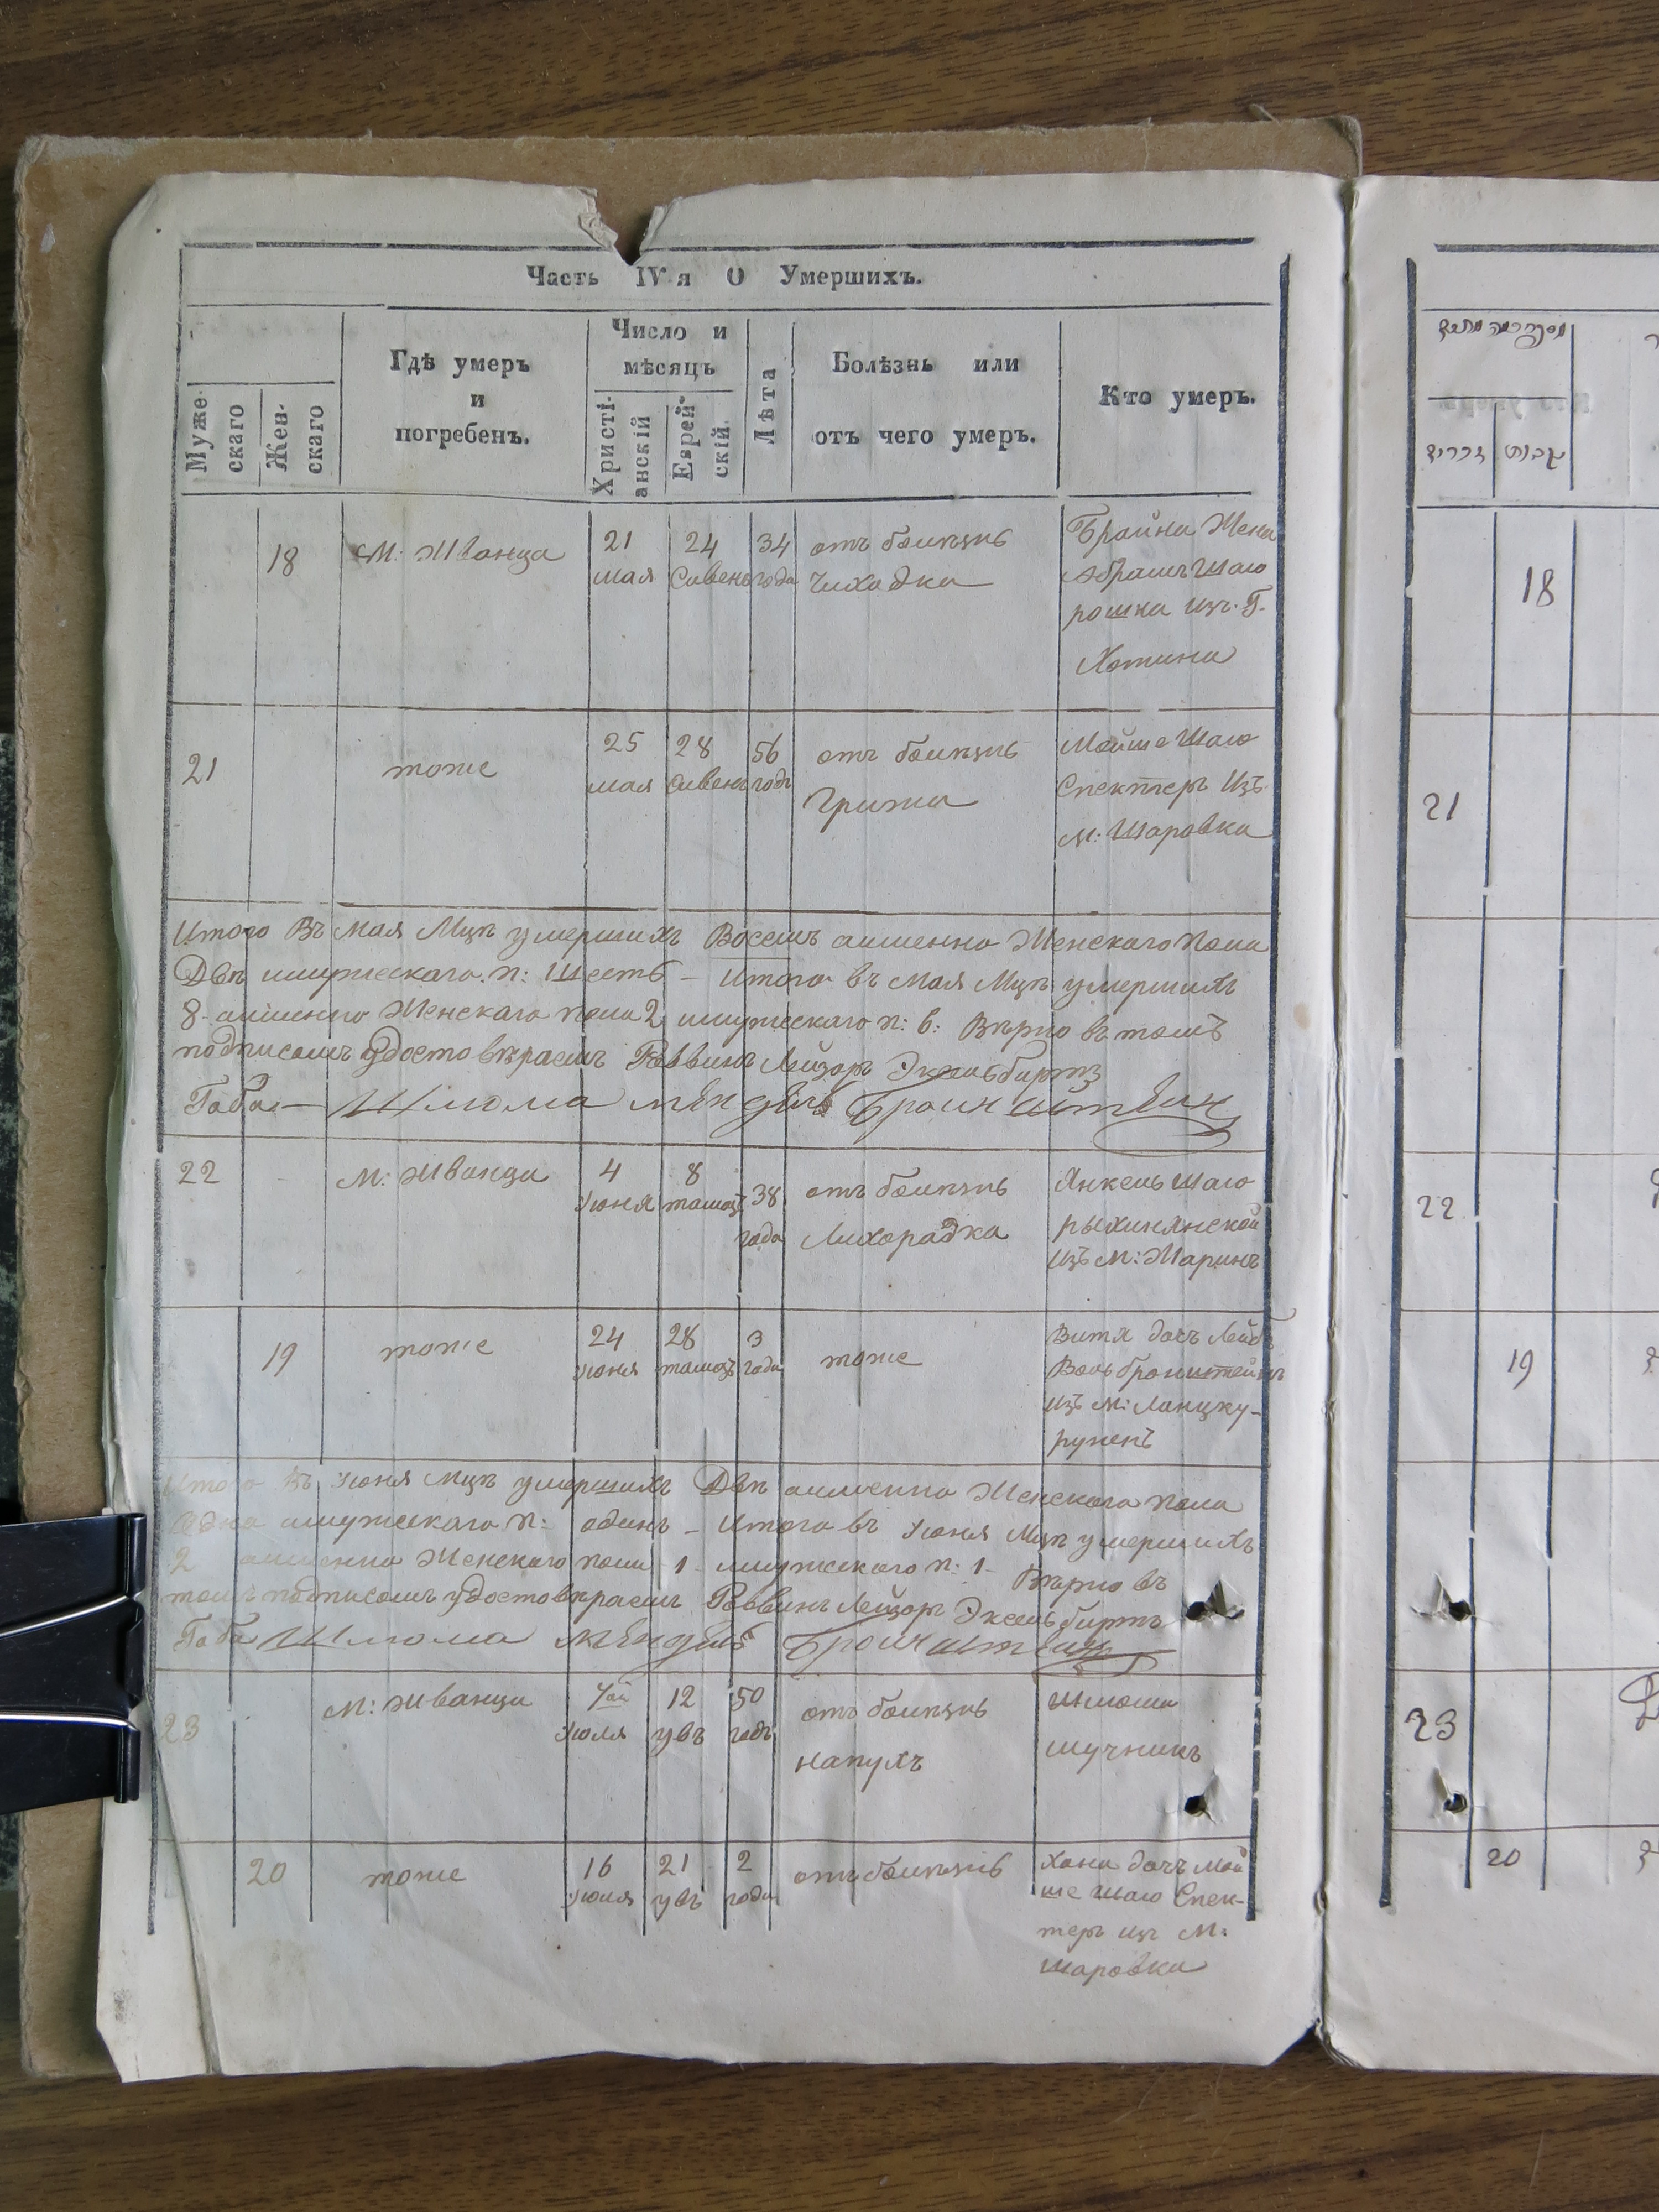 Часть IV-я О Умершихъ.
Муже-
скаго
Жен-
скаго
Гдѣ умеръ
и
погребенъ.
Число и
мѣсяцъ
Христі-
анскій
Еврей-
скій
Лѣта
Болѣзнь или
отъ чего умеръ.
Кто умеръ.
18
М: Жванца
21
мая
24
Сивень
34
года
отъ болѣзнь
Чиходка
Брайна Жена
Абрамъ Шаю
рошка изъ. Г.
Хотина
21
тоже
25
мая
28
Сивень
56
годъ
отъ болѣзнь
Грижа
Мойше Шаю
Спектеръ Изъ
м: Шаровка
Итого Въ Мая Мцѣ умершихъ Восемъ аименно Женскаго пола
Двѣ имужескаго. п: Шесть — Итого въ Мая Мцѣ умершихъ
8 - аименно Женскаго пола 2 имужескаго п: 6: Вѣрно въ томъ
подписомъ удостовѣраемъ Раввинъ Лейзоръ
Габа — Шлюма мендель Бронштеин
22
М: Жванца
4
Июня
8
тамозъ
38
года
отъ болѣзнь
Лихорадка
Янкель Шаю
изъ М: Жаринъ
19
тоже
24
июня
28
тамозъ
3
года
тоже
Витя дочъ Лейбъ
Воль бронштейнъ
изъ М: Ланцку-
рунень
Итого Въ июня Мцѣ умершихъ Двѣ аименно Женскаго пола
Одна имужескаго п: одинъ — Итого въ июня Мцѣ умершихъ
2 аименно Женскаго пола 1 - имужескаго п: 1 - Вѣрно въ
томъ подписомъ удостовѣраемъ Раввинъ Лейзоръ
Габа Шлюма мендель Бронштеин
23
М: Жванца
июля
12
увъ
50
годъ
отъ болѣзнь
напухъ
Шлюма
мучникъ
20
тоже
16
июля
21
увъ
2
года
отъ болѣзнь
Хана дочъ Мой
ше Шаю Спек-
теръ изъ М:
Шаровка
18
21
22
19
23
20